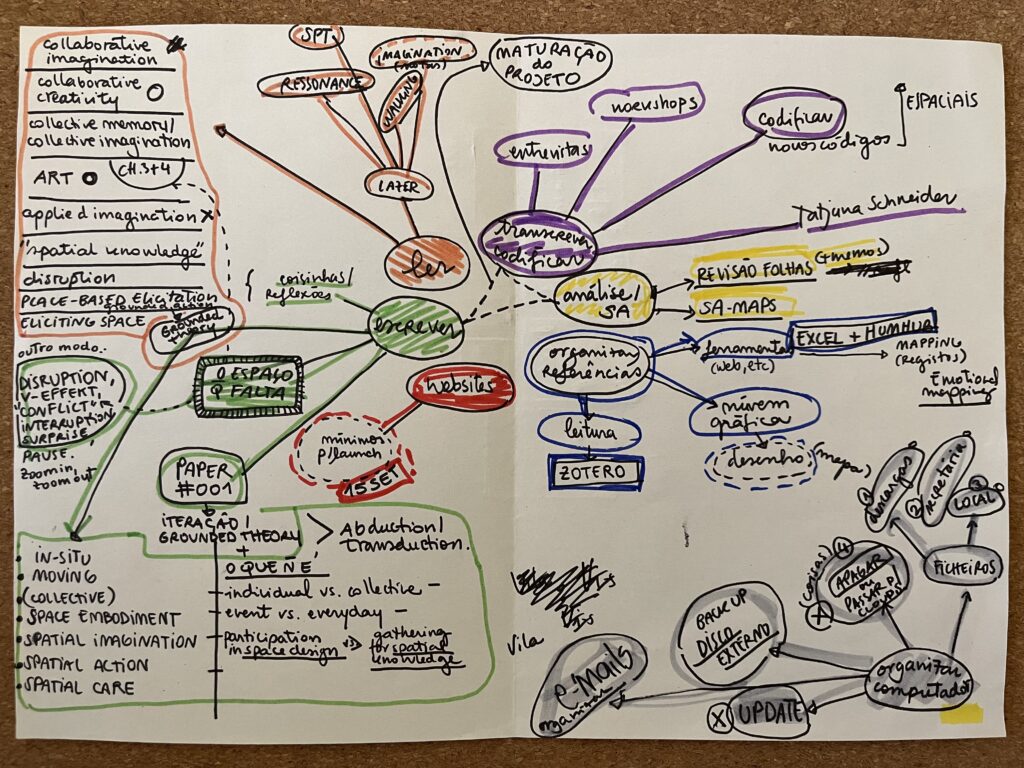 collaborative
imagination
collaborative
creativity
collective memory/
collective imagination
ART
CH.3+4
applied imagination X
"spatial knowledge"
disruption
PLACE-BASED ElicitatION
ELICITING SPACE
Grounded
theory
SPT
RESSONANCE
IMAGINATION
WALKING
LAZER
ler
MATURAÇÃO
do
PROJETO
entrevitas
workshops
codificar
novos códigos
ESPACIAIS
transcrever
codificar
Tatjana Schneider
análise/
SA
REVISÃO FOLHAS (+memos)
SA-MAPS
coisinhas/
reflexões
escrever
O ESPAÇO
Q FALTA
outro modo.
DISRUPTION,
V-EFFEKT,
"CONFLICT",
INTERRUPTION
SURPRISE,
PAUSE.
Zoom in,
zoom out
websites
mínimos
p/launch
15 SET
PAPER
#001
organizar
referências
ferramentas
(web, etc)
EXCEL + HUMHUB
MAPPING
(Registos)
Emotional
mapping
leitura
ZOTERO
núvem
gráfica
desenho
(mapa)
ITERAÇÃO/
GROUNDED THEORY
+
Abduction/
transduction.
O QUE Ñ É
individual vs. collective –
event vs. everyday –
participation
in space design
vs
gathering
for spatial
knowledge
• IN-SITU
• MOVING
• (COLLECTIVE)
• SPACE EMBODIMENT
• SPATIAL IMAGINATION
• SPATIAL ACTION
• SPATIAL CARE
Vila
1 descargas
2 secretária
3 LOCAL
FICHEIROS
4
APAGAR
ou
PASSAR P/
CLOUDS
X
BACK UP
DISCO
EXTERNO
e-mails
organizar
X UPDATE
organizar
computador